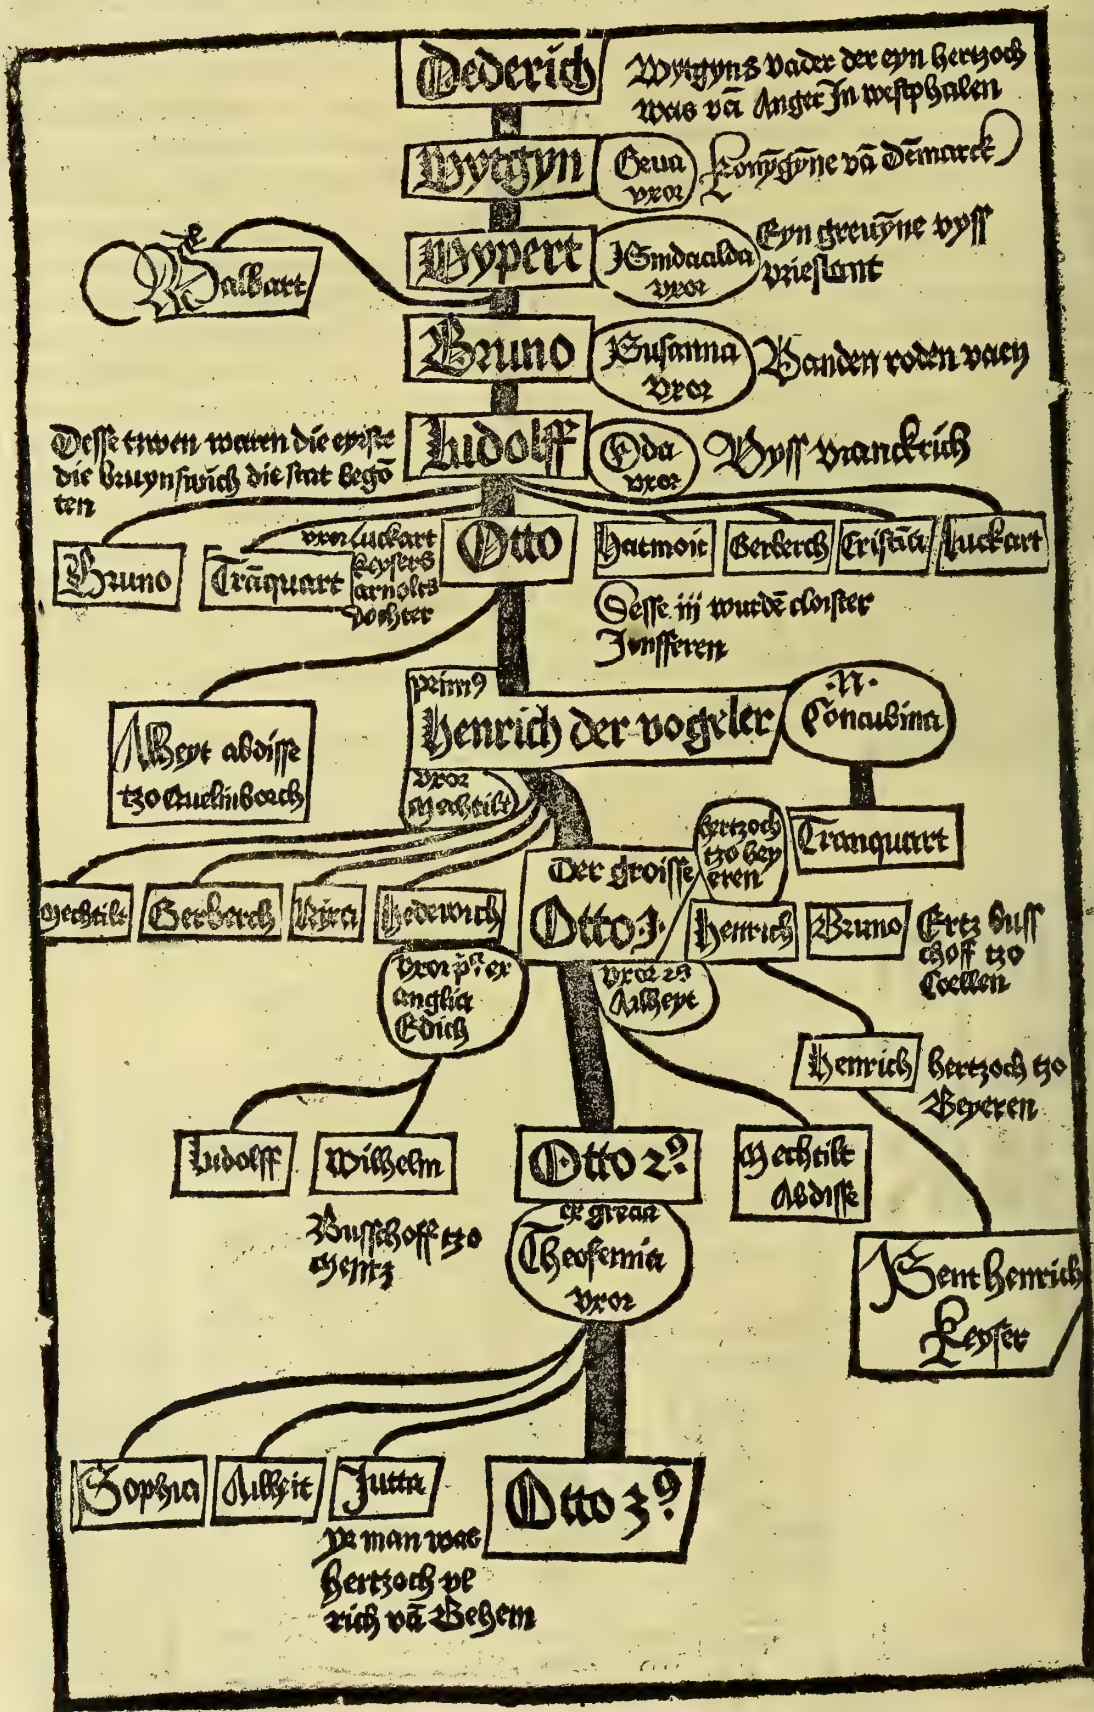 Dederich
Wytgyns vader der eyn hertzoch
was vā Anger Jn westphalen
Wytgyn
Geua
vxor
konȳgȳne vā Dēmarck
Wypert
vxor
Eyn greuȳne vyss
vrieslant
Walbart
Bruno
Susanna
vxor
Vanden roden vaen
Ludolff
Oda
vxor
Vyss vranckrich
Desse twen waren die eyrste
die bruynswich die stat begō
ten
Bruno
Trāquart
vxor luckart
keysers
arnolts
dochter
Otto
Hatmoit
Gerberch
Cristīa
Luckart
Desse iij wurdē cloister
Junfferen
Alheyt abdisse
tzo Quelinborch
prim9
Henrich der vogeler
.N.
Concubina
vxor
Mechtilt
Tranquart
Mechtilt
Gerberch
Hedewich
Der groisse
Otto J.
hertzoch
tzo bey
eren
Henrich
Bruno
Ertz buss
choff tzo
Coellen
vxor p9 ex
anglia
Edich
vxor 29
Alheyt
Henrich
hertzoch tzo
Beyeren
Ludolff
Wilhelm
Busschoff tzo
Mentz
Otto 29
Mechtilt
Abdisse
ex grecia
Theofemia
vxor
Sent Henrich
Keyser
Sophia
Alheit
Jutta
yr man was
hertzoch vl
rich vā Behem
Otto 39